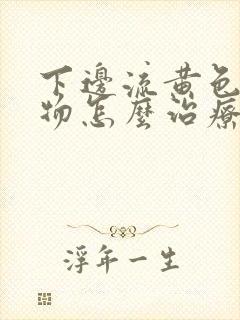 下邊流黃色
物怎麼治療
浮年一生